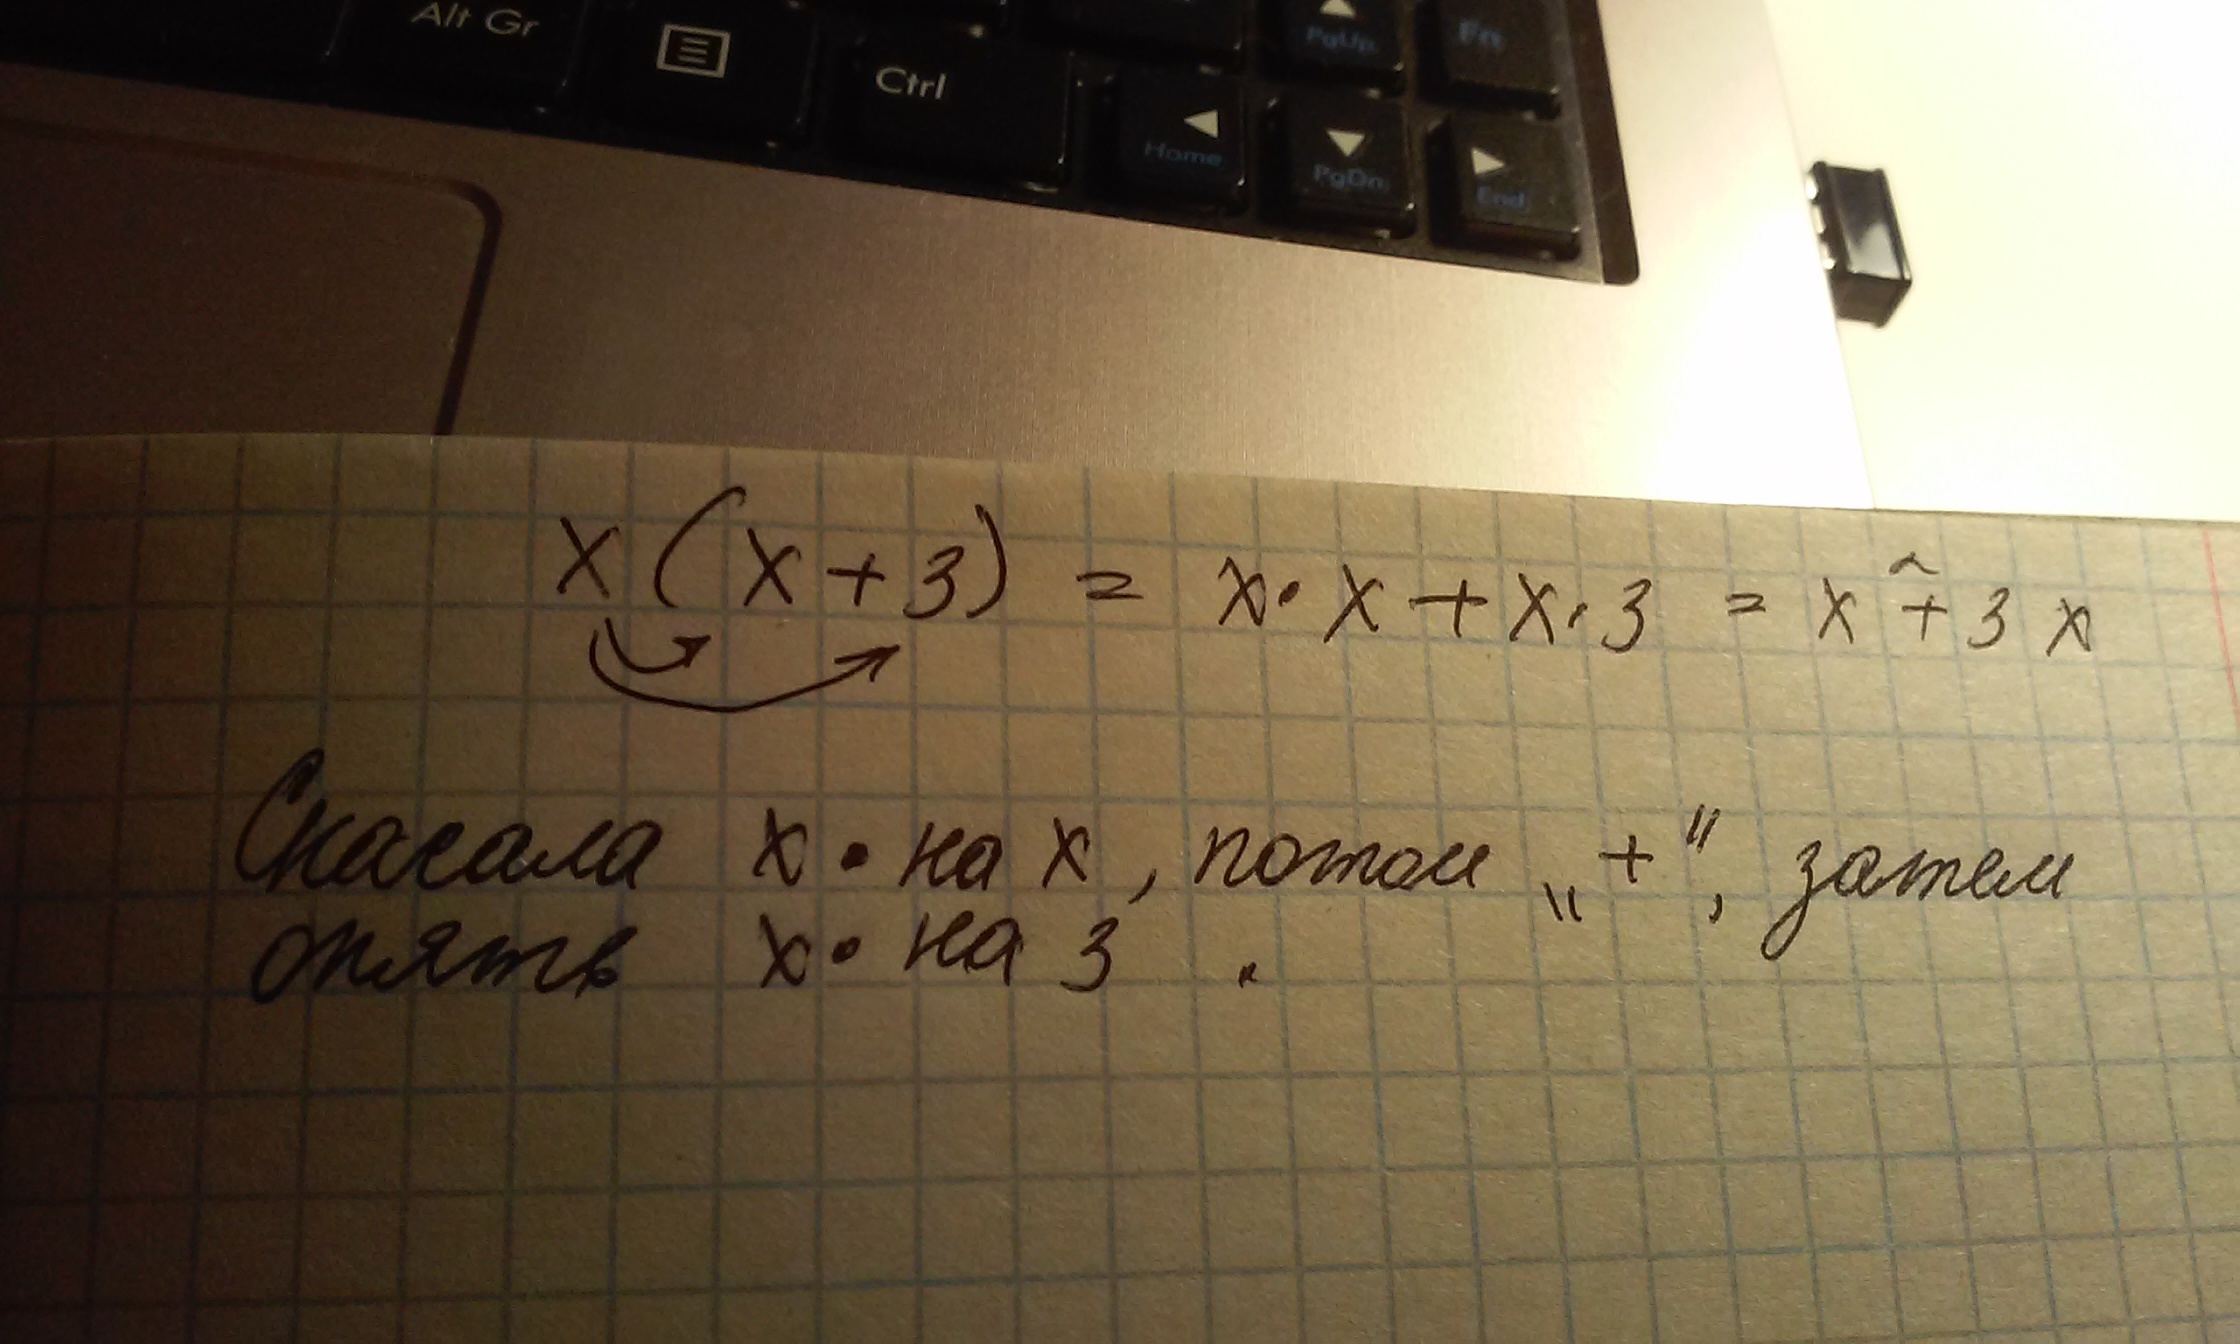 Alt Gr
Ctrl
PgUp
Fn
Home
PgDn
End
x(x+3) = x·x+x·3 = x²+3x
Сначала x • на x, потом „+“, затем
опять x • на 3 .